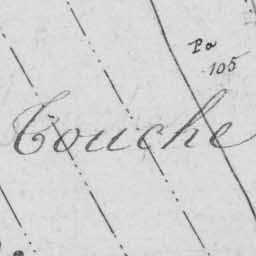 Pa
105
Touche